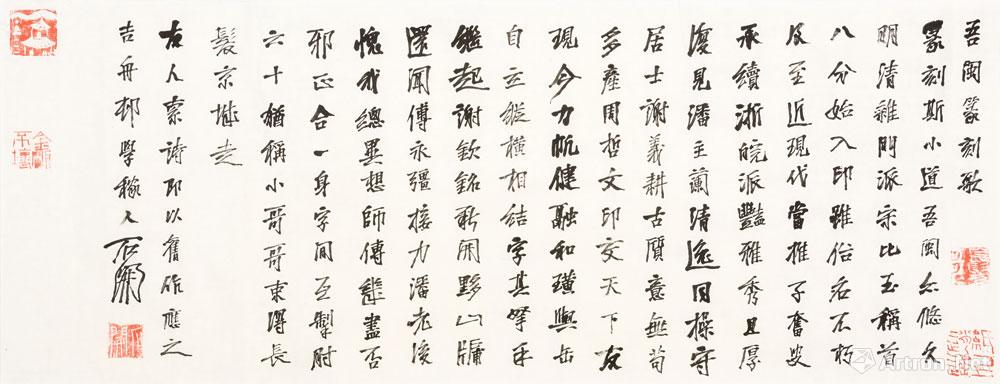 吾闽篆刻歌
篆刻斯小道吾闽亦悠久
明清雜門派宗比玉稱首
八分始入印雖俗名不朽
及至近現代當推子奮叟
承續浙皖派豔雅秀且厚
復見潘主蘭清逸同操守
居士謝義耕古質意無苟
多產周哲文印交天下友
現今力帆健融和璜與缶
自立縱橫相結字其擘手
繼起謝欽銘新開黟山牖
還聞傅永强接力潘老後
愧我總異想師傅能盡否
邪正合一身字间互掣肘
六十猶稱小哥哥束得長
髮京城走
友人索詩即以舊作應之
吉舟邨學稼人石開
Artron.Net